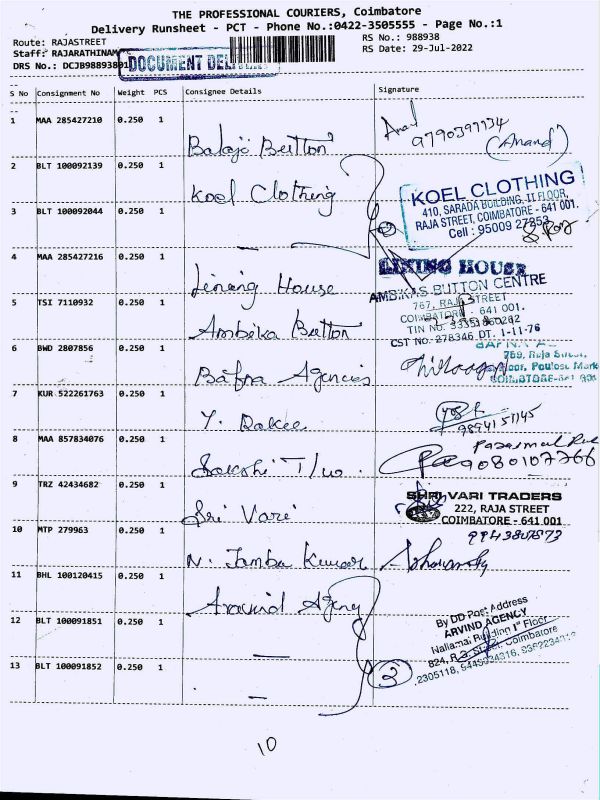 THE PROFESSIONAL COURIERS, Coimbatore
Delivery Runsheet - PCT - Phone No.:0422-3505555 - Page No.:1
Route: RAJASTREET
RS No.: 988938
Staff: RAJARATHINAM
RS Date: 29-Jul-2022
DRS No.: DCJB98893801
DOCUMENT
S No Consignment No Weight PCS Consignee Details Signature
1 MAA 285427210 0.250 1 Balaji Button
9790397734
(Anand)
2 BLT 100092139 0.250 1 Koel Clothing
KOEL CLOTHING
410, SARADA BUILDING, II FLOOR,
RAJA STREET, COIMBATORE - 641 001.
Cell : 95009 27853
3 BLT 100092044 0.250 1 —
2
4 MAA 285427216 0.250 1 Lining House
LINING HOUSE
5 TSI 7110932 0.250 1 Ambika Button
AMBIKAS BUTTON CENTRE
767, RAJA STREET
COIMBATORE - 641 001.
TIN NO.
CST NO. 278346 DT. 1-11-76
6 BWD 2807856 0.250 1 Bafna Agencies
769, Raja Street,
7 KUR 522261763 0.250 1 Y. Rakee
8 MAA 857834076 0.250 1 Sakshi T/w.
9080107766
9 TRZ 42434682 0.250 1 Sri Vari
SHRI VARI TRADERS
222, RAJA STREET
COIMBATORE - 641 001
10 MTP 279963 0.250 1 N. Jamba Kumar
11 BHL 100120415 0.250 1 Aravind Agency
By DD Post Address
ARVIND AGENCY
Nallamai Building 1st Floor
12 BLT 100091851 0.250 1 —
13 BLT 100091852 0.250 1 —
3
10